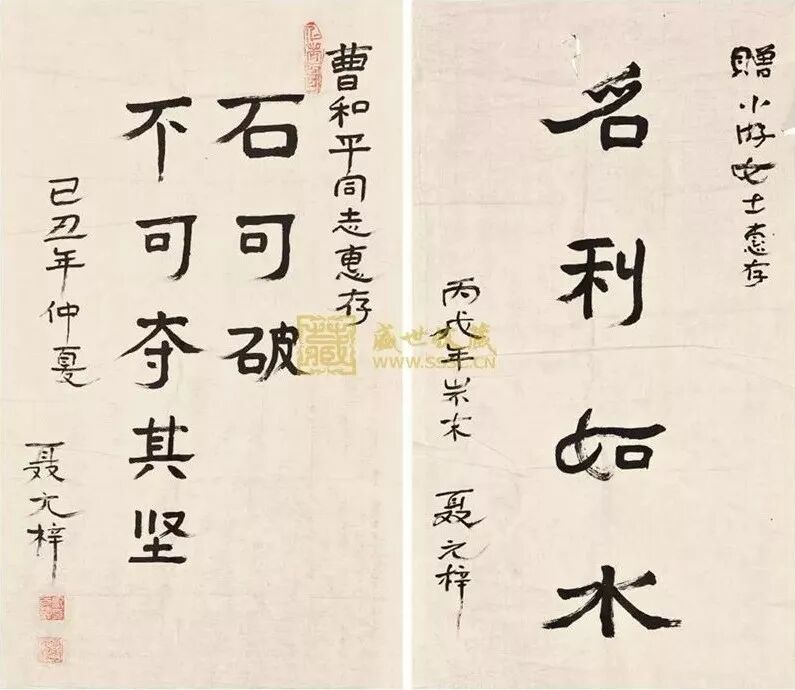 贈小游女士惠存
名利如水
丙戌年岁末 聂元梓
曹和平同志惠存
石可破
不可夺其坚
己丑年仲夏
聂元梓
藏
盛世收藏
WWW.SSSC.CN